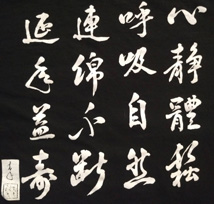 心靜體鬆
呼吸自然
連綿不斷
延年益壽